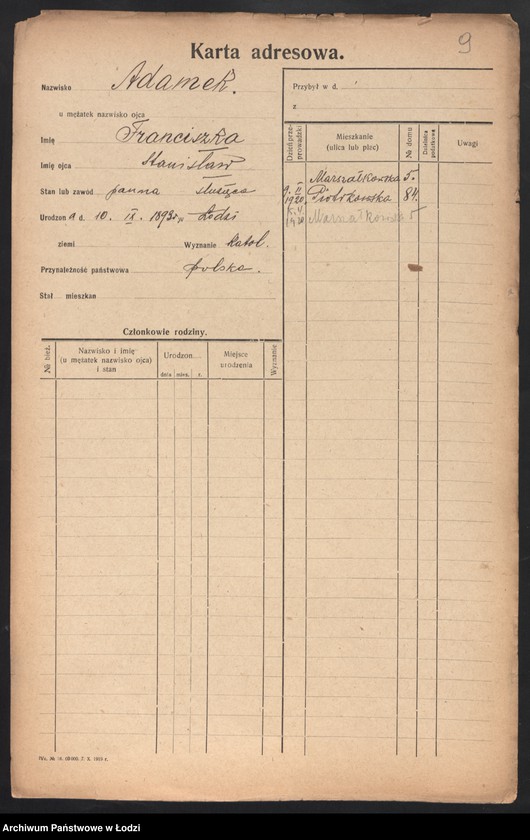 9
Karta adresowa.
Nazwisko Adamek.
u mężatek nazwisko ojca
Imię Franciszka
Imię ojca Stanisław
Stan lub zawód panna służąca
Urodzon a d. 10. IX. 1893 r. w Łodzi
ziemi Wyznanie katol.
Przynależność państwowa polska.
Stał. mieszkan
Członkowie rodziny.
№ bież. Nazwisko i imię (u mężatek nazwisko ojca) i stan Urodzon... data mies. r. Miejsce urodzenia Wyznanie
Przybył w d.
z
Dzień przeprowadzki Mieszkanie (ulica lub plac) № domu Dzielnica podatkowa Uwagi
Marszałkowska 5.
9. II 1920 Piotrkowska 84.
Marszałkowska 5
Archiwum Państwowe w Łodzi